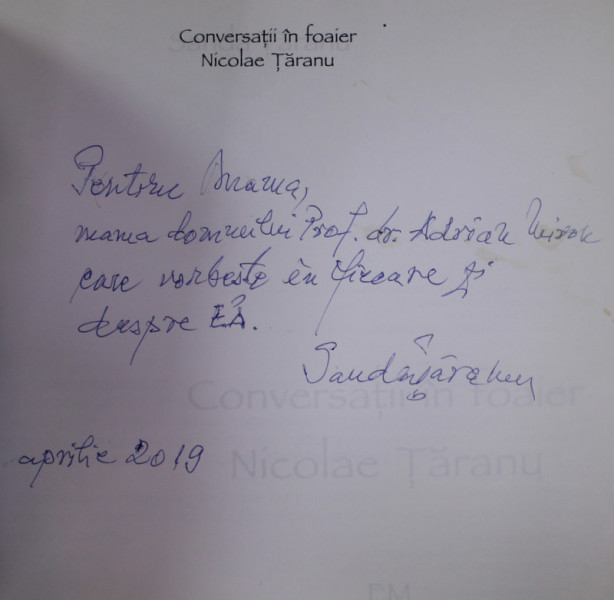 Conversații în foaier
Nicolae Țăranu
Pentru Mama,
mama domnului Prof. dr. Adrian
care vorbește în fiecare zi
despre EA.
Sanda Țăranu
aprilie 2019
Conversații în foaier
Nicolae Țăranu
EM